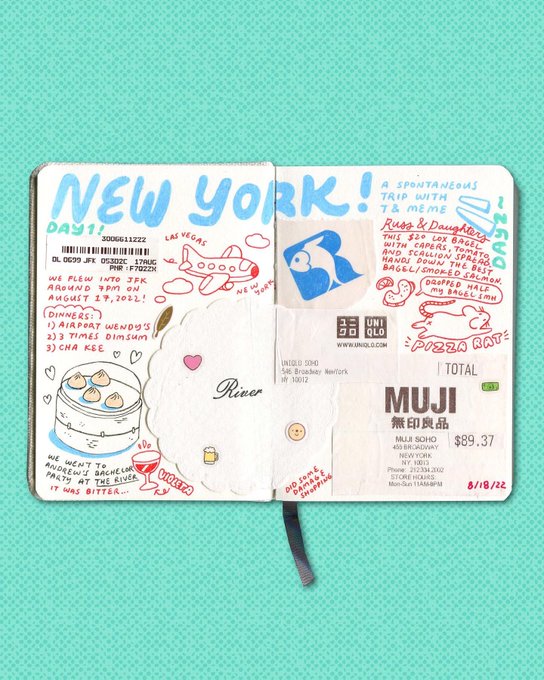 NEW YORK!
DAY 1!
3006611222
DL 0699 JFK 05302C 17AUG
PNR:F7QZZX
LAS VEGAS
NEW YORK
WE FLEW INTO JFK
AROUND 7PM ON
AUGUST 17, 2022!
DINNERS:
1) AIRPORT WENDY'S
2) 3 TIMES DIMSUM
3) CHA KEE
River
WE WENT TO
ANDREW'S BACHELOR
PARTY AT THE RIVER
IT WAS BITTER...
VIOLETA
A SPONTANEOUS
TRIP WITH
T & MEME
DAY 2~
Russ & Daughters
THIS $20 LOX BAGEL
WITH CAPERS, TOMATO,
AND SCALLION SPREAD
HANDS DOWN THE BEST
BAGEL/SMOKED SALMON.
DROPPED HALF
MY BAGEL SMH
PIZZA RAT
UNI
QLO
WWW.UNIQLO.COM
UNIQLO SOHO
546 Broadway NewYork
NY 10012
TOTAL
MUJI
無印良品
MUJI SOHO
455 BROADWAY
NEW YORK
NY, 10013
Phone: 212.334.2002
STORE HOURS:
Mon-Sun 11AM-8PM
$89.37
DID SOME
DAMAGE
SHOPPING
8/18/22